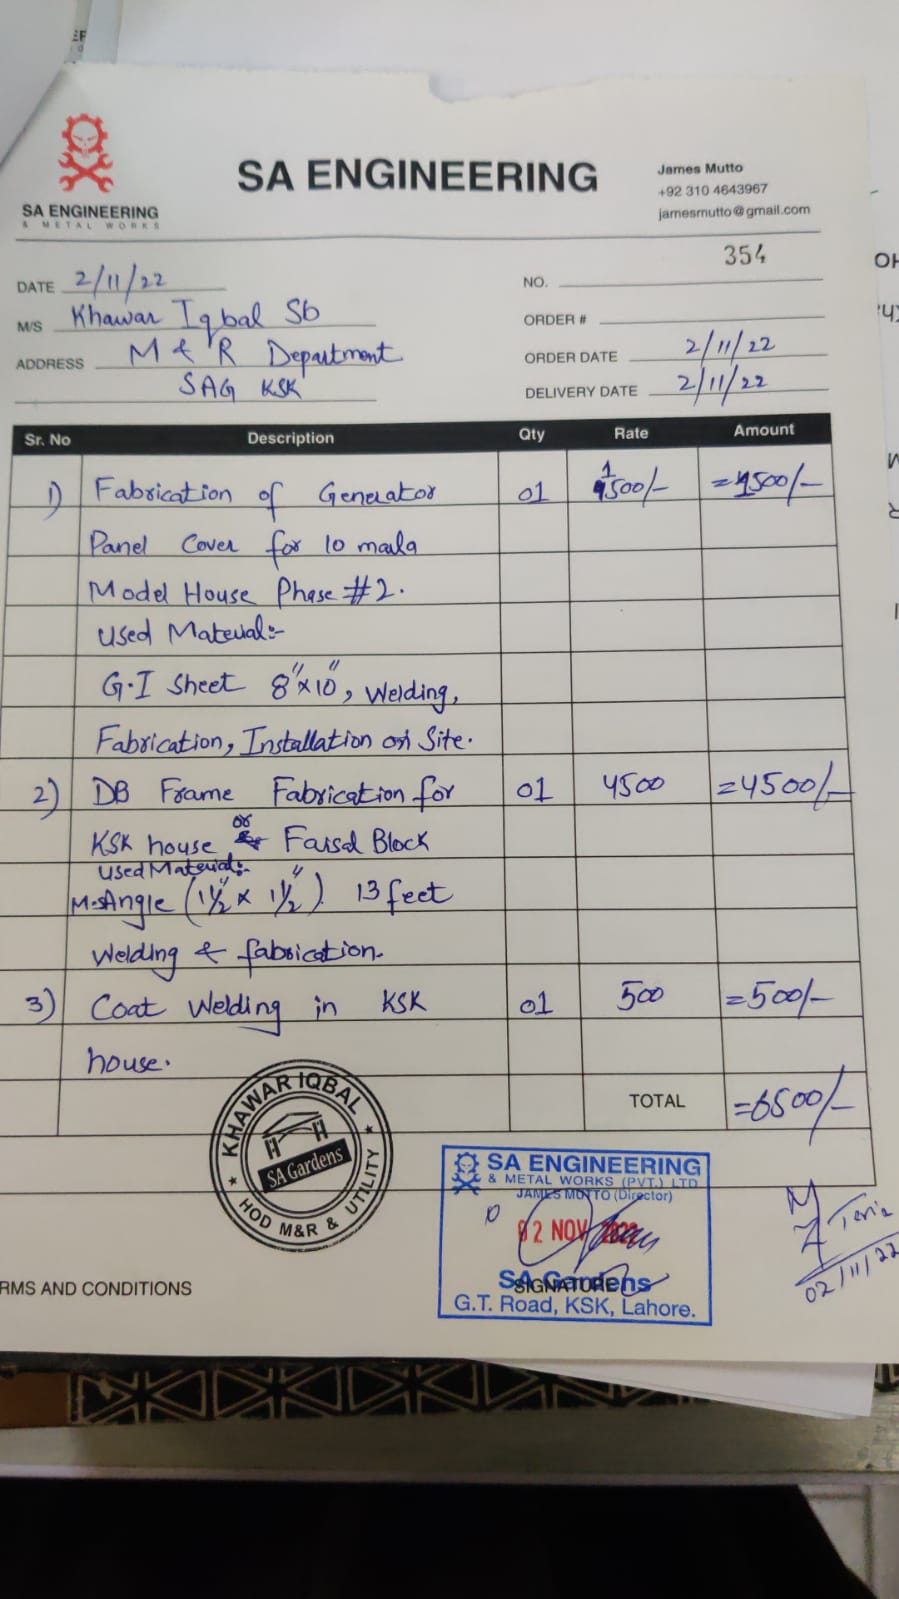 SA ENGINEERING
& METAL WORKS
SA ENGINEERING
James Mutto
+92 310 4643967
jamesmutto@gmail.com
DATE 2/11/22
NO. 354
M/S Khawar Iqbal Sb
ORDER #
ADDRESS M & R Department
SAG KSK
ORDER DATE 2/11/22
DELIVERY DATE 2/11/22
Sr. No Description Qty Rate Amount
1) Fabrication of Generator 01 1500/- =1500/-
Panel Cover for 10 marla
Model House Phase #2.
Used Material:-
G.I Sheet 8"x10", Welding,
Fabrication, Installation on Site.
2) DB Frame Fabrication for 01 4500 =4500/-
KSK house or Faisal Block
Used Material:-
M.s Angle (1½" x 1½") 13 feet
Welding & fabrication.
3) Coat Welding in KSK 01 500 =500/-
house.
TOTAL =6500/-
KHAWAR IQBAL
SA Gardens
HOD M&R & UTILITY
SA ENGINEERING
& METAL WORKS (PVT.) LTD
JAMES MUTTO (Director)
02 NOV 2022
SA Gardens
SIGNATURE
G.T. Road, KSK, Lahore.
02/11/22
RMS AND CONDITIONS